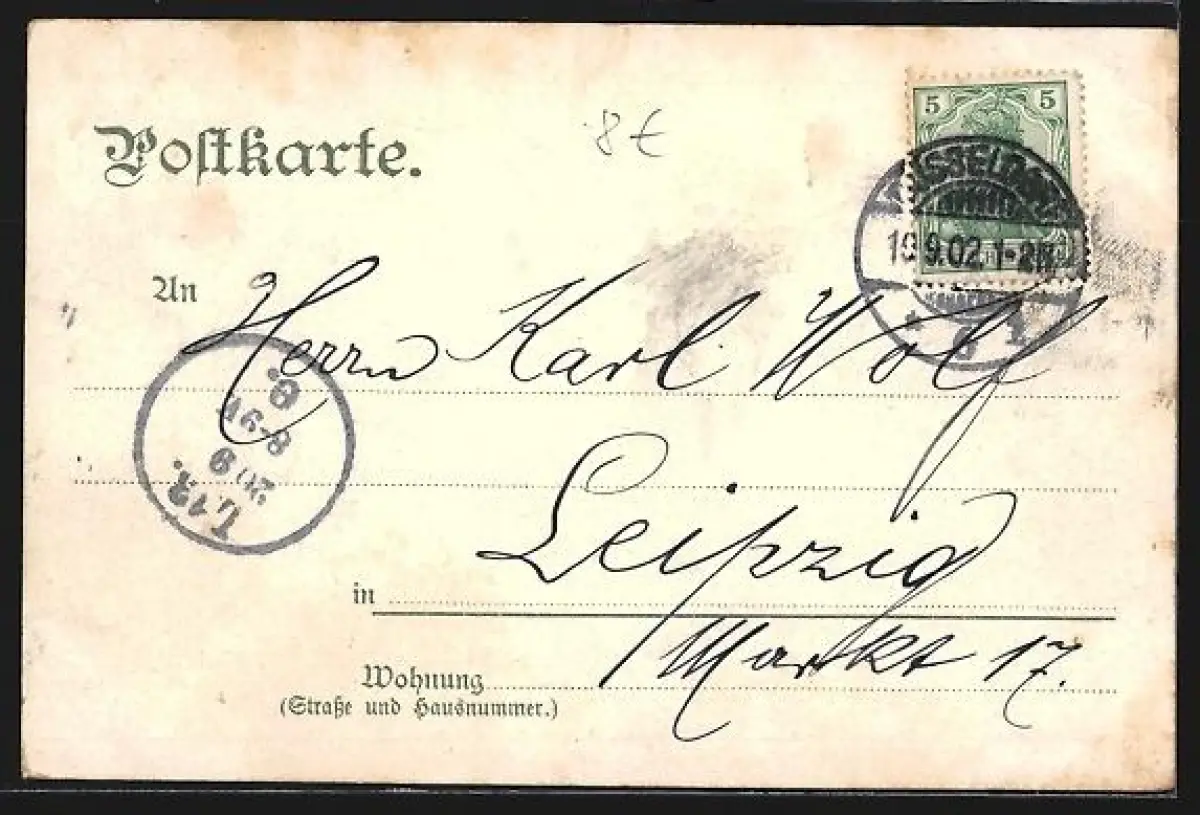 Postkarte.
8 €
5 5
19.9.02. 1-2N
An Herrn Karl Wolf
8-9V
20 9
L.13.
in Leipzig
Wohnung Markt 17.
(Straße und Hausnummer.)